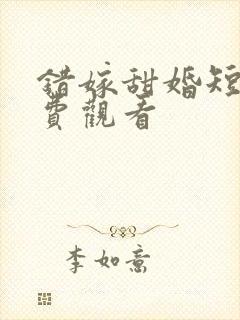 錯嫁甜婚短
費觀看
李如意